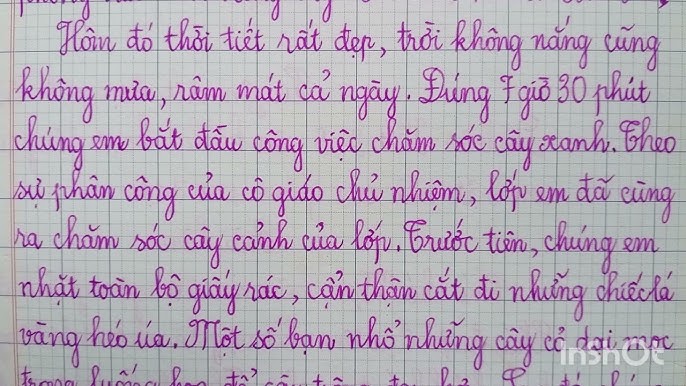 Hôm đó thời tiết rất đẹp, trời không nắng cũng
không mưa, râm mát cả ngày. Đúng 7 giờ 30 phút
chúng em bắt đầu công việc chăm sóc cây xanh. Theo
sự phân công của cô giáo chủ nhiệm, lớp em đã cùng
ra chăm sóc cây cảnh của lớp. Trước tiên, chúng em
nhặt toàn bộ giấy rác, cẩn thận cắt đi những chiếc lá
vàng héo úa. Một số bạn nhổ những cây cỏ dại mọc
InShot